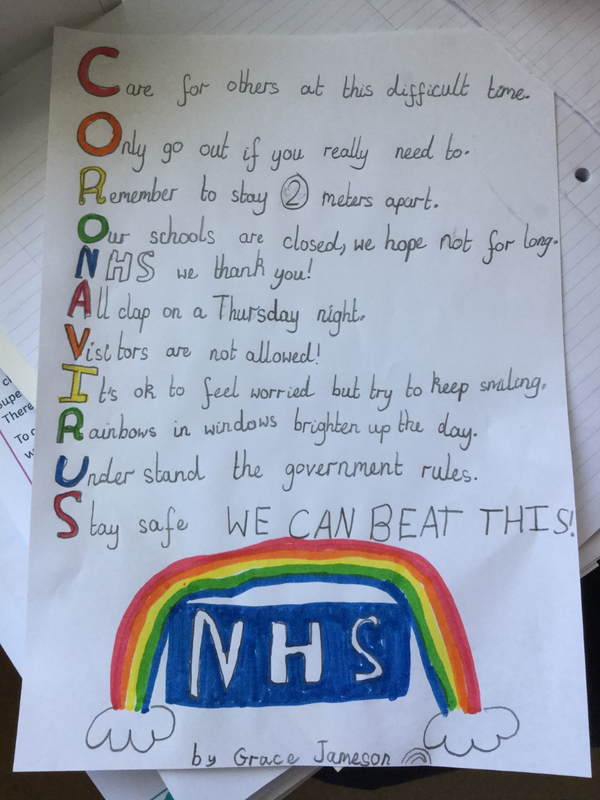 Care for others at this difficult time.
Only go out if you really need to.
Remember to stay 2 meters apart.
Our schools are closed, we hope not for long.
NHS we thank you!
All clap on a Thursday night.
Visitors are not allowed!
It's ok to feel worried but try to keep smiling.
Rainbows in windows brighten up the day.
Under stand the government rules.
Stay safe WE CAN BEAT THIS!
NHS
by Grace Jameson
There
To